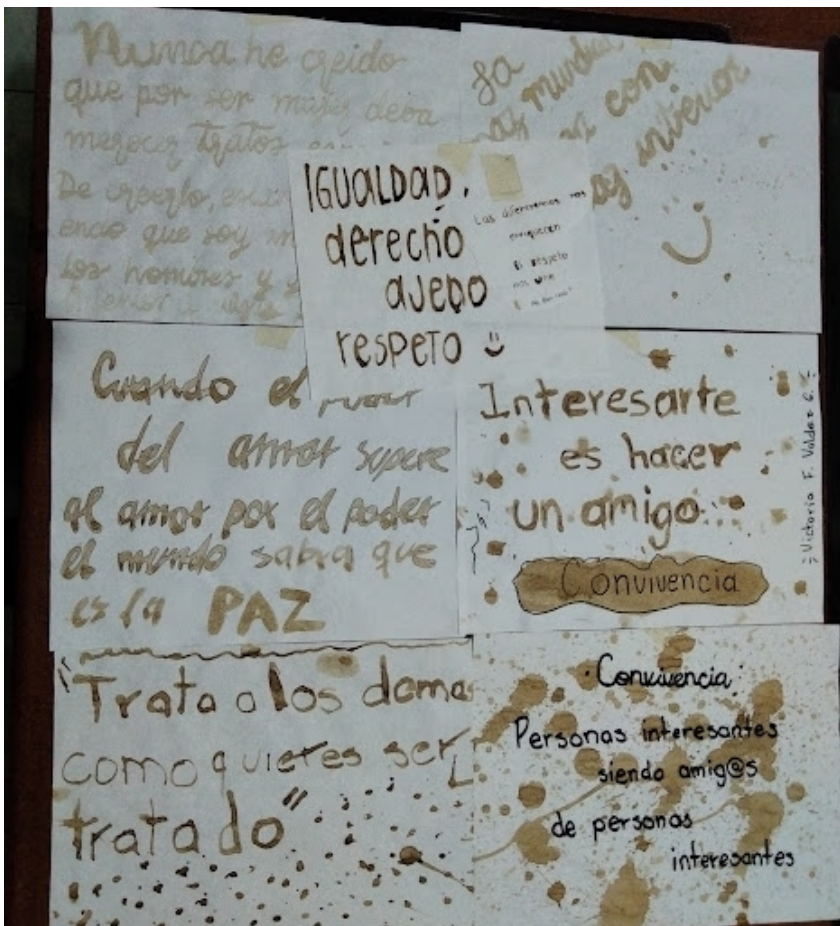 Nunca he creido
que por ser mujer deba
merecer tratos
De creerlo, estar
endo que soy in
los hombres y y
La
con
interior
IGUALDAD,
derecho
ajeno
respeto
Las diferencias nos
enriquecen
el respeto
nos une
Cuando el poder
del amor supere
al amor por el poder
el mundo sabra que
es la PAZ
Interesarte
es hacer
un amigo
Convivencia
Victoria F. Valdez C.
"Trata a los demas
como quieres ser
tratado"
Convivencia:
Personas interesantes
siendo amig@s
de personas
interesantes